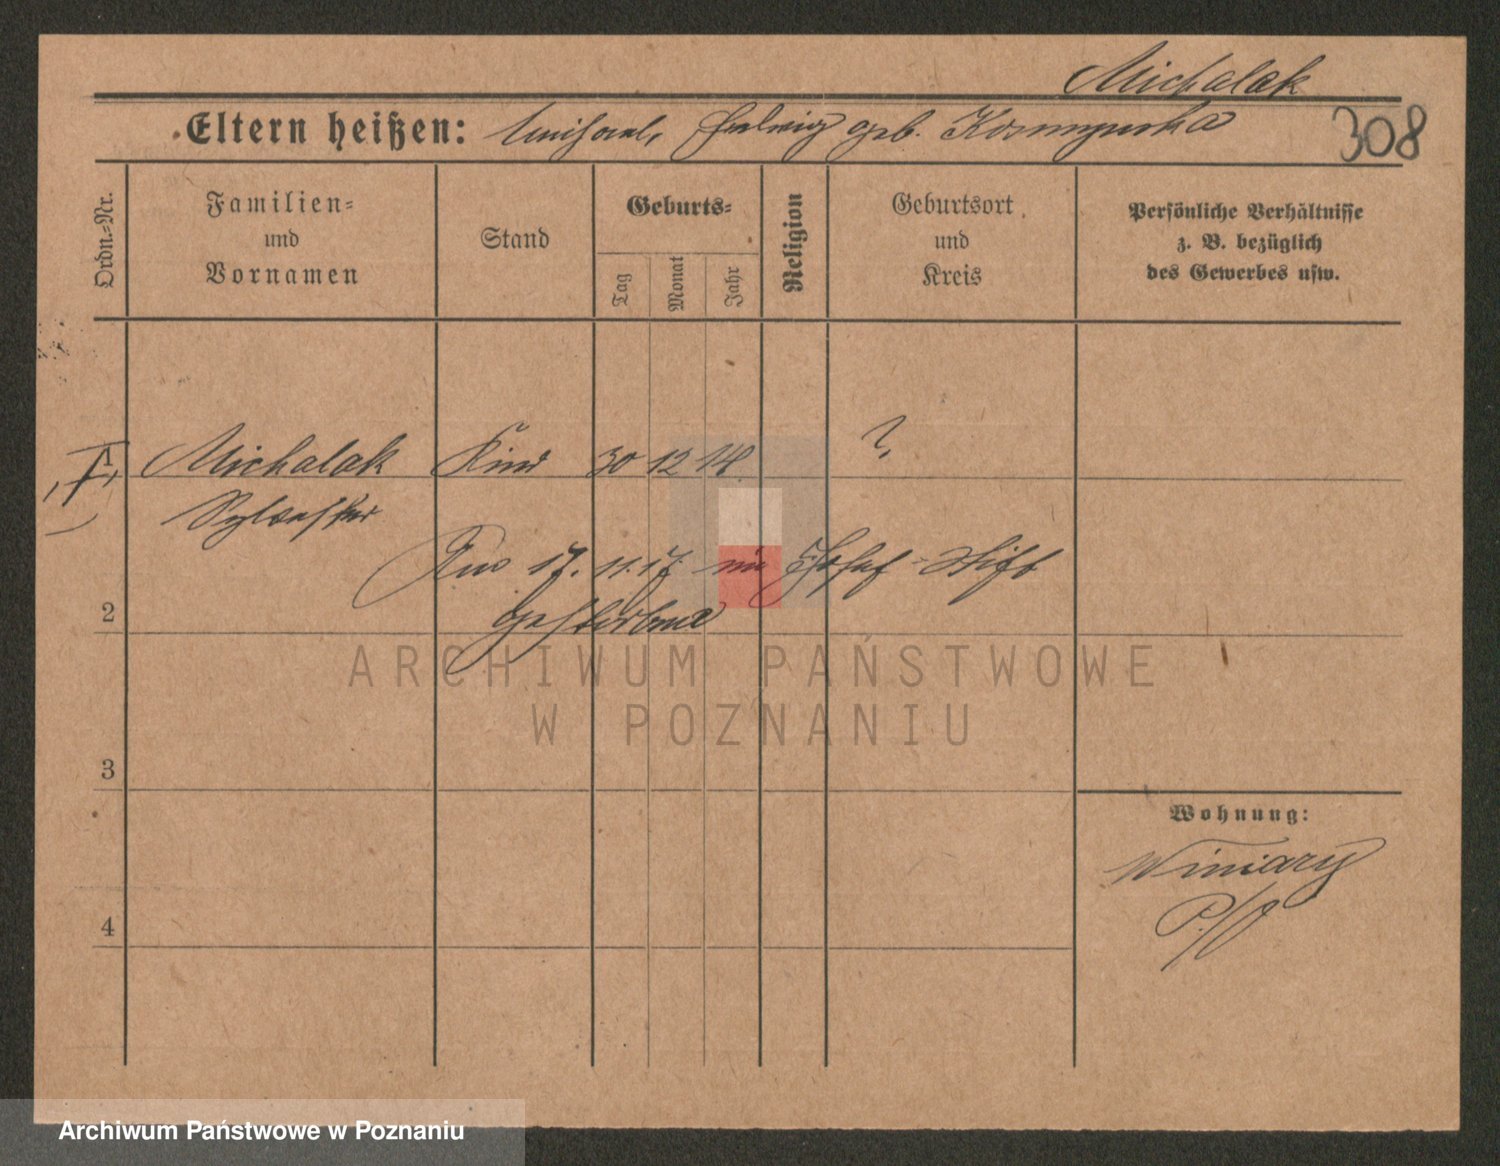 Michalak
Eltern heißen: Michael, Hedwig geb.
308
Ordn.-Nr.
Familien-
und
Vornamen
Stand
Geburts-
Tag
Monat
Jahr
Religion
Geburtsort
und
Kreis
Persönliche Verhältnisse
z. B. bezüglich
des Gewerbes usw.
1 Michalak Kind 30 12 14 ?
Sylvester
Am 17. 11. 17 im Josef-Stift
2 gestorben
ARCHIWUM PAŃSTWOWE
W POZNANIU
3
Wohnung:
Winiary
4
Archiwum Państwowe w Poznaniu